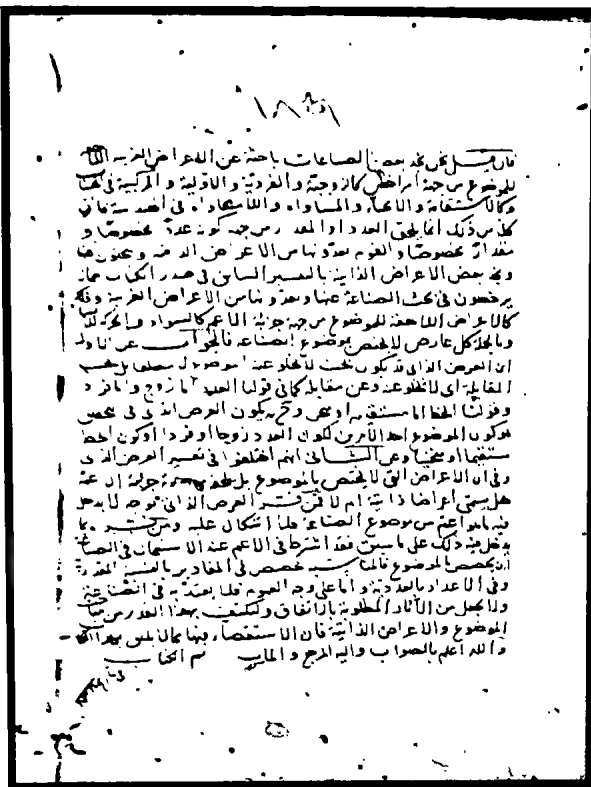 فان قيل نحن نجد بعض الصناعات باحثة عن الاعراض الغريبة
للموضوع من جهة كالزوجية والفردية والاولية والمركبية في
وكالاستقامة والانحناء والمساواة واللامساواة في الهندسة فان
كل من ذلك انما يلحق العدد او المقدار من جهة كونه عددا مخصوصا و
مقدارا مخصوصا والقوم يعدونها من الاعراض الذاتية ويبحثون عنها
ونجد بعض الاعراض الذاتية بالتفسير السابق في صدر الكتاب مما
يرفضون في بحث الصناعة عنها ويعدونها من الاعراض الغريبة وذلك
كالاعراض اللاحقة للموضوع من جهة جزئه الاعم كالسواد والحركة
وبالجملة كل عارض لا يختص بموضوع الصناعة فالجواب عن الاول
ان العرض الذاتي قد يكون بحيث لا يخلو عنه الموضوع بل بحسب
المقابلة اى لا يخلو عنه وعن مقابله كما في قولنا العدد اما زوج واما فرد
وقولنا الخط اما مستقيم او منحن وح يكون العرض الذاتي
هو كون الموضوع احد الامرين ككون العدد زوجا او فردا او كون الخط
مستقيما او منحنيا وعن الثاني انهم اختلفوا في تفسير العرض الذاتي
وفي ان الاعراض التي لا يختص بالموضوع بل تلحقه بواسطة جزئه الاعم
هل يسمى اعراضا ذاتية ام لا فمن فسر العرض الذاتي بوجه لا يدخل
فيه ما هو اعم من موضوع الصناعة فلا اشكال عليه ومن فسره بما
يدخل فيه ذلك على ما سبق فقد اشترط في الاعم عند الاستعمال في
ان يخصص بالموضوع فالمناسب تخصص في المقادير بالنسبة المقدارية
وفي الاعداد بالعددية واما على وجه العموم فلا يعتد به في الصناعة
ولا يجعل من الآثار المطلوبة بالاتفاق وليكتف بهذا القدر من
الموضوع والاعراض الذاتية فان الاستقصاء فيها مما لا يليق بهذا
والله اعلم بالصواب واليه المرجع والمآب تم الكتاب